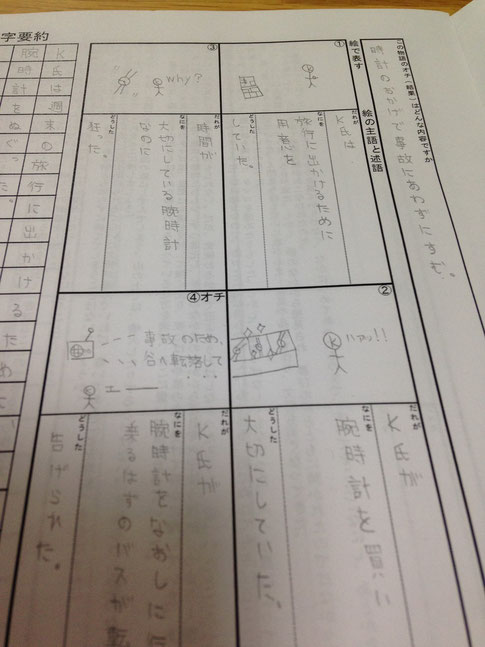 この物語のオチ(結果)はどんな内容ですか
時計のおかげで事故にあわずにすむ。
絵の主語と述語
絵で表す
①
だれが
K氏は
なにを
旅行に出かけるために
用意を
どうした
していた。
②
ハアッ!!
だれが
K氏が
なにを
腕時計を買い
どうした
大切にしていた。
③
why?
だれが
時間が
なにを
大切にしている腕時計
なのに
どうした
狂った。
④オチ
事故のため、
谷へ転落して
エー
だれが
K氏が
なにを
腕時計をなおしに
乗るはずのバスが転
どうした
告げられた。
字要約
K氏は週末の
旅行に出かけるため
腕時計を